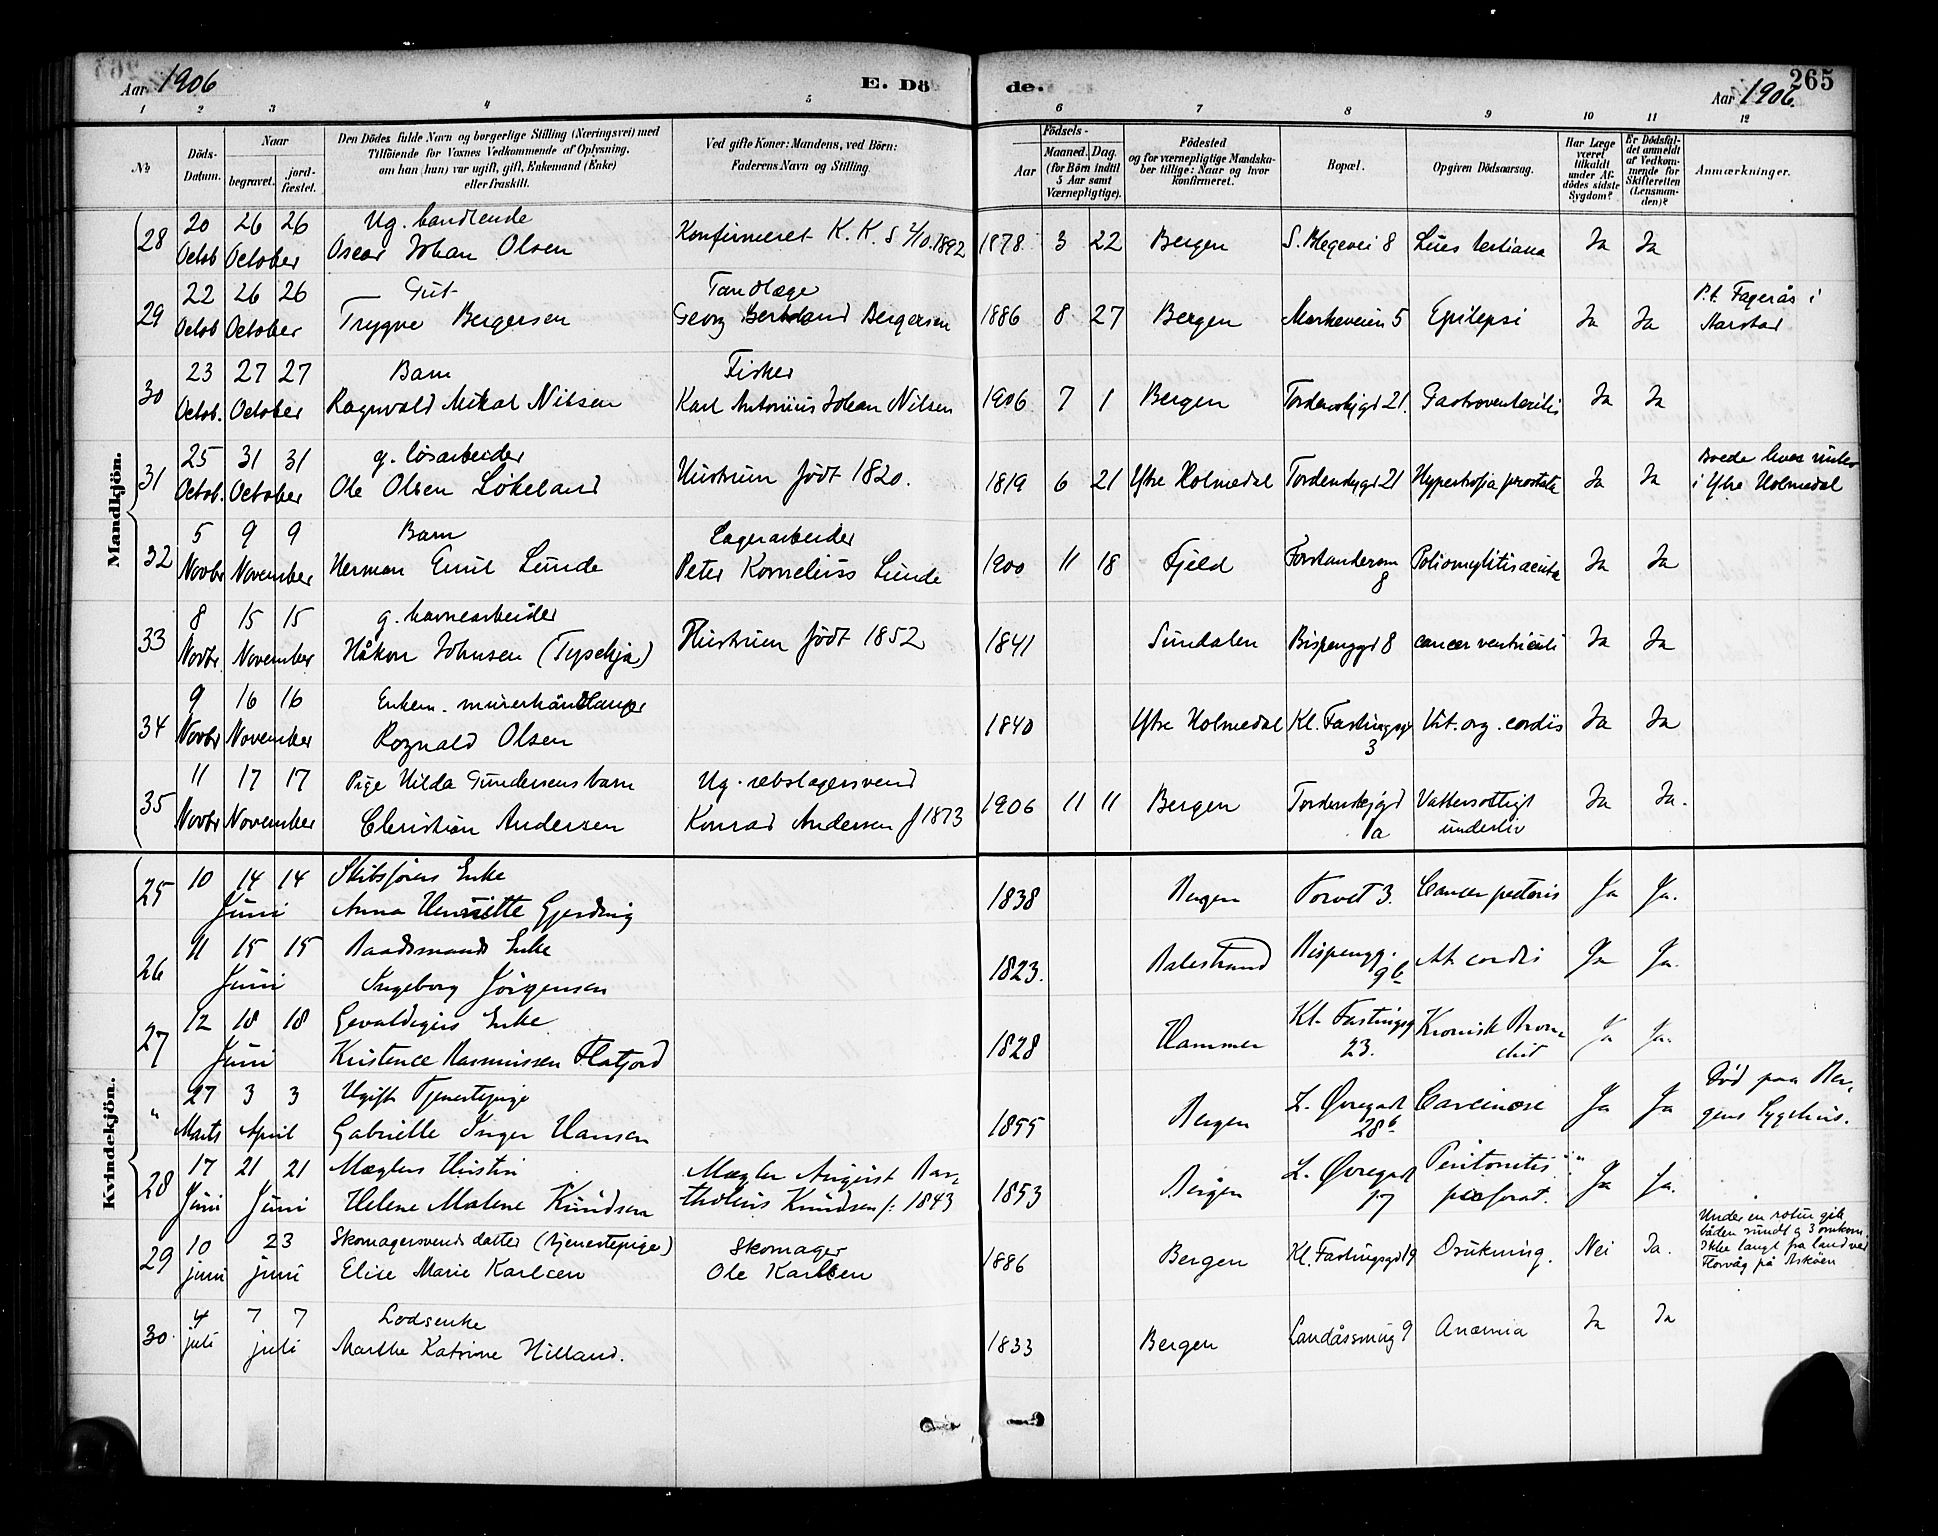 Aar 1906
E. Dö
de.
265
Aar 1906
1 2 3 4 5 6 7 8 9 10 11 12
No
Döds-Datum.
Naar
begravet.
jord-fæstet.
Den Dödes fulde Navn og borgerlige Stilling (Næringsvei) med
Tilföiende for Voxnes Vedkommende af Oplysning,
om han (hun) var ugift, gift, Enkemand (Enke)
eller fraskilt.
Ved gifte Koner: Mandens, ved Börn:
Faderens Navn og Stilling.
Födsels-
Aar
Maaned. Dag.
(for Börn indtil
5 Aar samt
Værnepligtige).
Födested
og for værnepligtige Mandska-
ber tillige: Naar og hvor
konfirmeret.
Bopæl.
Opgiven Dödsaarsag.
Har Læge
været
tilkaldt
under Af-
dödes sidste
Sygdom?
Er Dödsfal-
det anmeldt
af Vedkom-
mende for
Skifteretten
(Lensman-
den)?
Anmærkninger.
Mandkjön.
28 20 26 26 Ug. handlende
Octob October Oscar Johan Olsen Konfirmeret K. K. 1892 1878 3 22 Bergen 8 Lues tertiana Ja Ja
29 22 26 26 Gut Tandlæge
Octob October Trygve Bergersen Georg Bergersen 1886 8 27 Bergen Markeveien 5 Epilepsi Ja Ja P.t. Fagerås i
Aarstad
30 23 27 27 Barn Fisker
Octob. October Ragnvald Mikal Nilsen Karl Antonius Johan Nilsen 1906 7 1 Bergen Tordenskjgd 21. Gastroenteritis Ja Ja
31 25 31 31 g. løsarbeider
Octob. October Ole Olsen Lökeland Hustrun født 1820. 1819 6 21 Ytre Holmedal 21 Hypertrofia prostata Ja Ja
i Ytre Holmedal
32 5 9 9 Barn Lagerarbeider
Novbr November Herman Emil Lunde Peter Kornelius Lunde 1900 11 18 Fjeld Forstandersm 8 Poliomylitis acuta Ja Ja
33 8 15 15 g. havnearbeider
Novbr November Håkon Johnsen Hustrun født 1852 1841 Sundalen Bispenggd 8 cancer ventriculi Ja Ja
34 9 16 16 Enkem. murerhåndlanger
Novbr November Rognald Olsen 1840 Ytre Holmedal Kl. Fastingsgd 3 Vit. org. cordis Ja Ja
35 11 17 17 Pige Hilda Gundersens barn Ug. rebslagersvend
Novbr November Christian Andersen Konrad Andersen f 1873 1906 11 11 Bergen Tordenskjgd 1a Vattersottigt
underliv Ja Ja.
Kvindekjön.
25 10 14 14 Skibsførers Enke
Juni Anna Henriette Gjerding 1838 Bergen Torvet 3. Cancer pectoris Ja Ja.
26 11 15 15 Baadsmands Enke
Juni Ingeborg Jörgensen 1823. Balestrand Bispengg. 9b cordis Ja Ja.
27 12 18 18 Gevaldigers Enke
Juni Kristence Rasmussen Flatjord 1828 Hammer Kl. Fastingsg 23. Kronisk Bron-
chit Ja Ja.
" 27 3 3 Ugift Tjenestepige
Marts April Gabrielle Inger Hansen 1855 Bergen L. Øvregad 28b Carcinose Ja Ja Död paa Ber-
gens Sygehus.
28 17 21 21 Mæglers Hustru Mægler August Bar-
Juni Juni Helene Malene Knudsen tholius Knudsen f: 1843 1853 Bergen L. Øvregad 17 Peritonitis
perforat. Ja Ja.
29 10 23 Skomagersvends datter (tjenestepige) Skomager
juni juni Elise Marie Karlsen Ole Karlsen 1886 Bergen Kl. Fastingsgd 19 Drukning. Nei Ja. Under en rotur gik
båden rundt og 3 omkom.
Ikke langt fra land ved
Florvåg på Askøen
30. 4 7 7 Lodsenke
juli juli Marthe Katrine Hilland. 1833 Bergen Landåssmug 9 Anæmia Ja Ja